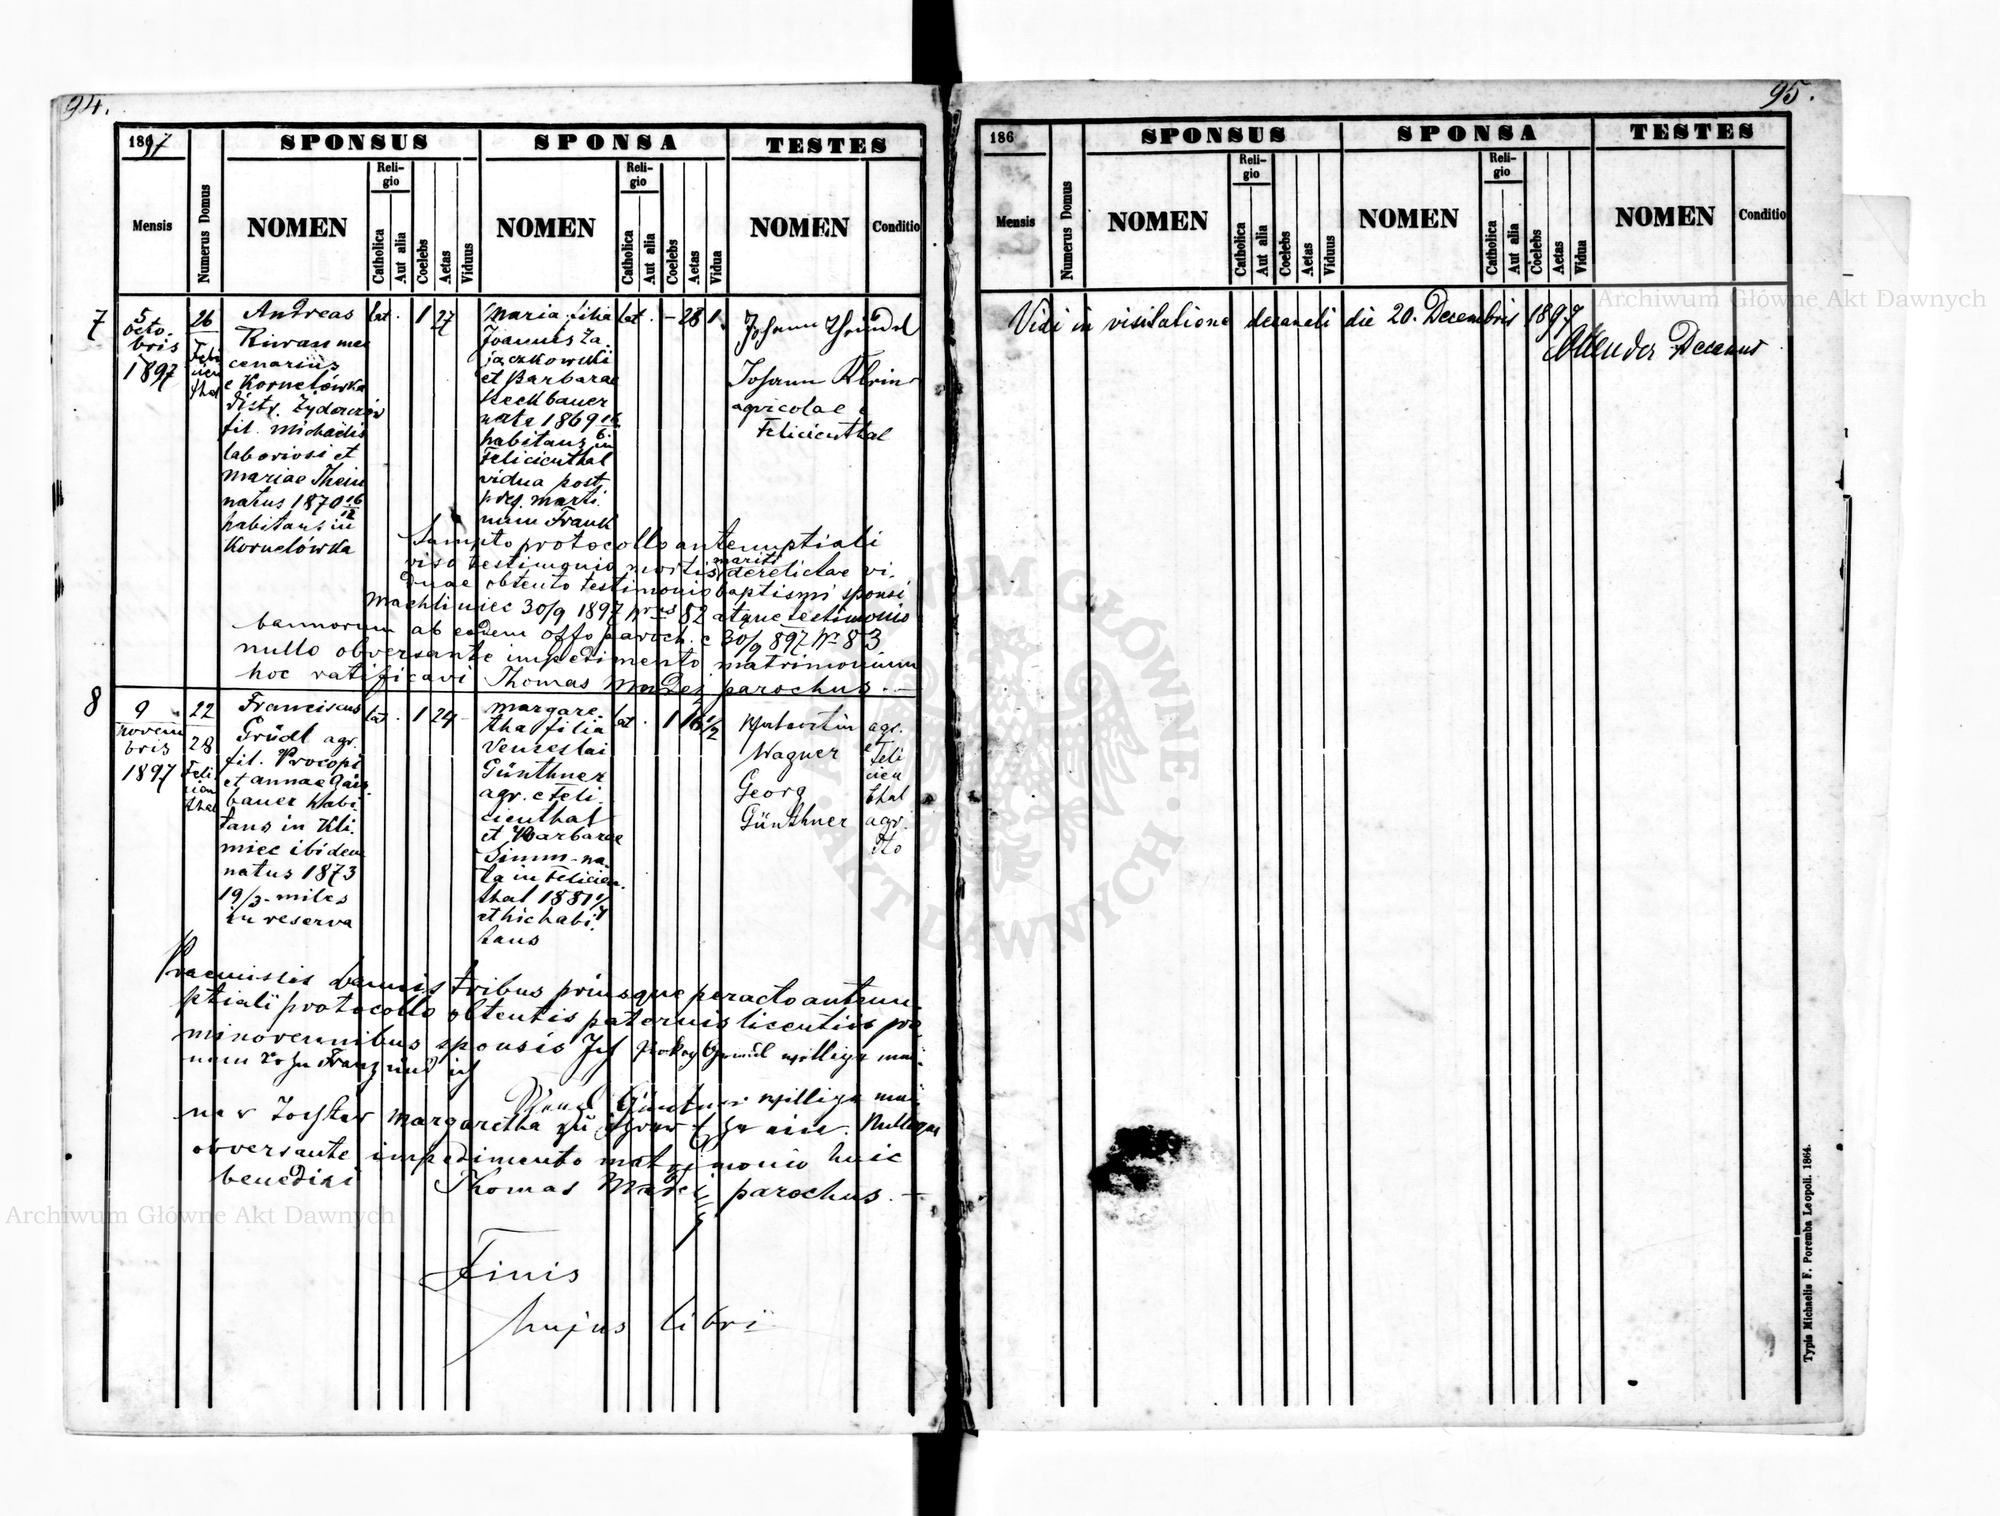 94.
1897
SPONSUS
SPONSA
TESTES
Mensis
Numerus Domus
NOMEN
Reli-
gio
Catholica
Aut alia
Coelebs
Aetas
Viduus
NOMEN
Reli-
gio
Catholica
Aut alia
Coelebs
Aetas
Vidua
NOMEN
Conditio
7
5
octo.
bris
1897
26
Feli
cien
thal
Andreas
mer
cenarius
e Kornelówka
distr.
fil. Michaelis
laboriosi et
Mariae Thein
natus 1870 16/12
habitans in
Kornelówka
lat.
1
27
Maria filia
Joannis Za
jączkowski
et Barbarae
Heckbauer
nata 1869 16/6
habitans in
Felicienthal
vidua post
Marti
num Frank
lat.
-
28
1.
Johann
Johann Klein
agricolae e
Felicienthal
Sumpto protocollo antenuptiali
viso testimonio mortis mariti derelictae vi.
duae obtento testimonio baptismi sponsi
Machliniec 30/9 1897 Nres 82 atque testimonio
bannorum ab eodem offo paroch. e 30/9 897 Nr 83
nullo obversante impedimento matrimonium
hoc ratificavi Thomas Madej parochus. —
8
9
novem
bris
1897
22
28
Feli
cien
thal
Franciscus
Gründl agr.
fil. Procopi
et Annae
bauer habi
tans in Kli.
miec ibidem
natus 1873
19/3 - miles
in reserva
lat.
1
24
-
Margare
tha filia
Venceslai
Günthner
agr. e Feli.
cienthal
et Barbarae
Simm - na.
ta in Felicien.
thal 1881 1/7
et hic habi.
tans
lat.
1
16 1/2
Wagner
Georg
Günthner
agr.
e Feli
cien
thal
agr.
tto
Praemissis bannis tribus priusque peracto antenu
ptiali protocollo obtentis paternis licentiis pro
minorennibus sponsis Ich Prokop Gründl willige mei
nem Sohn Franz und ich
Günthner willige mei
ner Tochter Margaretha zu ihrer Ehe ein. Nulloque
obversante impedimento matrimonio huic
benedixi Thomas Madej parochus. —
Finis
hujus libri
95.
186
SPONSUS
SPONSA
TESTES
Mensis
Numerus Domus
NOMEN
Reli-
gio
Catholica
Aut alia
Coelebs
Aetas
Viduus
NOMEN
Reli-
gio
Catholica
Aut alia
Coelebs
Aetas
Vidua
NOMEN
Conditio
Vidi in visitatione decanali die 20. Decembris 1897
Decanus
Typis Michaelis F. Poremba Leopoli. 1864.
Archiwum Główne Akt Dawnych
Archiwum Główne Akt Dawnych
ARCHIWUM GŁÓWNE · AKT DAWNYCH ·